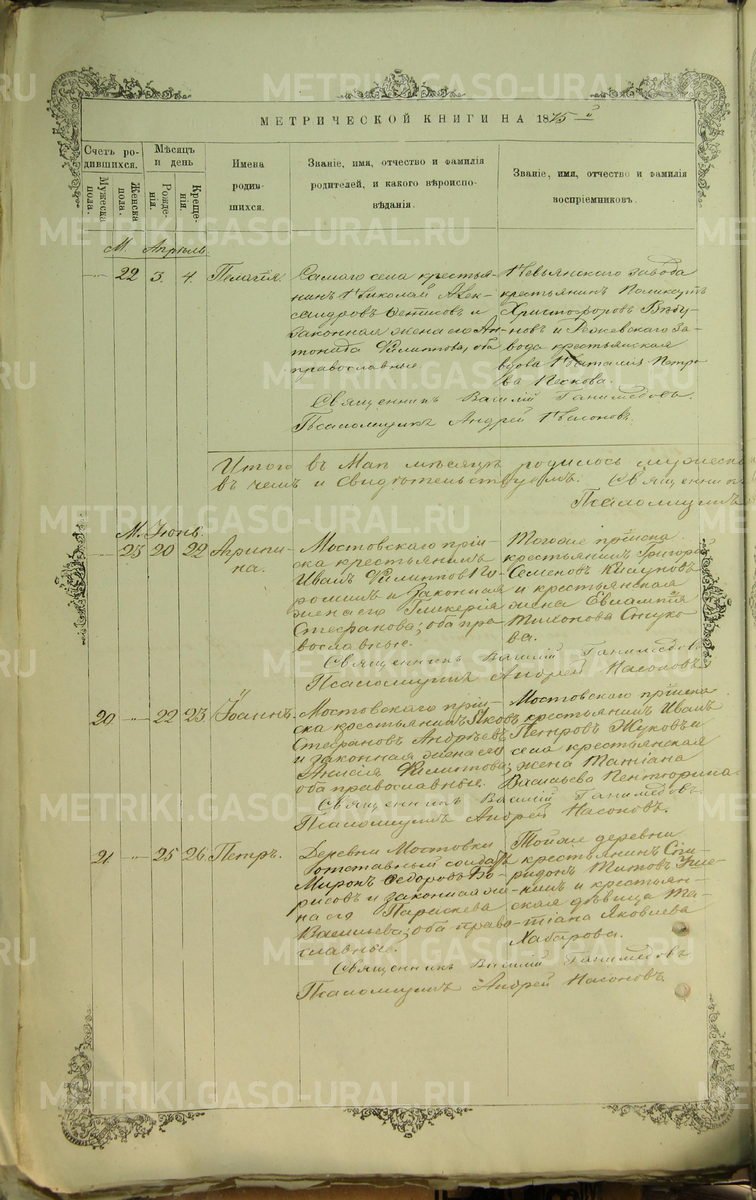 МЕТРИЧЕСКОЙ КНИГИ НА 1875 й
Счетъ родившихся.
Мужеска пола.
Женска пола.
Мѣсяцъ и день
Рожденія.
Крещенія.
Имена родившихся.
Званіе, имя, отчество и фамилія родителей, и какого вѣроисповѣданія.
Званіе, имя, отчество и фамилія воспріемниковъ.
М. Апрѣль
22 3. 4. Пелагія.
Самаго села крестья-
нинъ Николай Алек-
сандровъ и
законная жена его Ан-
тонида Филиппова, оба
православные
Невьянскаго завода
крестьянинъ Поликарпъ
Христофоровъ
новъ и Режевскаго за-
вода крестьянская
вдова Наталія Петро-
ва Пескова.
Священникъ Василій Ганимедовъ.
Псаломщикъ Андрей Насоновъ.
Итого въ Маѣ мѣсяцѣ родилось мужеска
въ чемъ и свидѣтельствуемъ: Священникъ
Псаломщикъ
М. Іюнь
23 20 22 Агрипи-
на.
Мостовскаго прі-
иска крестьянинъ
Иванъ Филипповъ
и законная
жена его Гликерія
Стефанова; оба пра-
вославные.
Тогоже пріиска
крестьянинъ Григорій
Семеновъ
и крестьянская
жена Евлампія
Тихонова
ва.
Священникъ Василій Ганимедовъ
Псаломщикъ Андрей Насоновъ
20 22 23 Іоаннъ.
Мостовскаго прі-
иска крестьянинъ Яковъ
Стефановъ Андреевъ
и законная жена его
Анисія Филиппова;
оба православные.
Мостовскаго пріиска
крестьянинъ Иванъ
Петровъ Жуковъ и
села крестьянская
жена Татіана
Васильева Пентюрина
Священникъ Василій Ганимедовъ.
Псаломщикъ Андрей Насоновъ.
21 25 26 Петръ.
Деревни Мостовки
отставный солдатъ
Миронъ Федоровъ Бо-
рисовъ и законная же-
на его Параскева
Васильева; оба право-
славные.
Тойже деревни
крестьянинъ Спи-
ридонъ Титовъ
и крестьян-
ская дѣвица Та-
тіана Яковлева
Хабарова.
Священникъ Василій Ганимедовъ
Псаломщикъ Андрей Насоновъ
METRIKI.GASO-URAL.RU